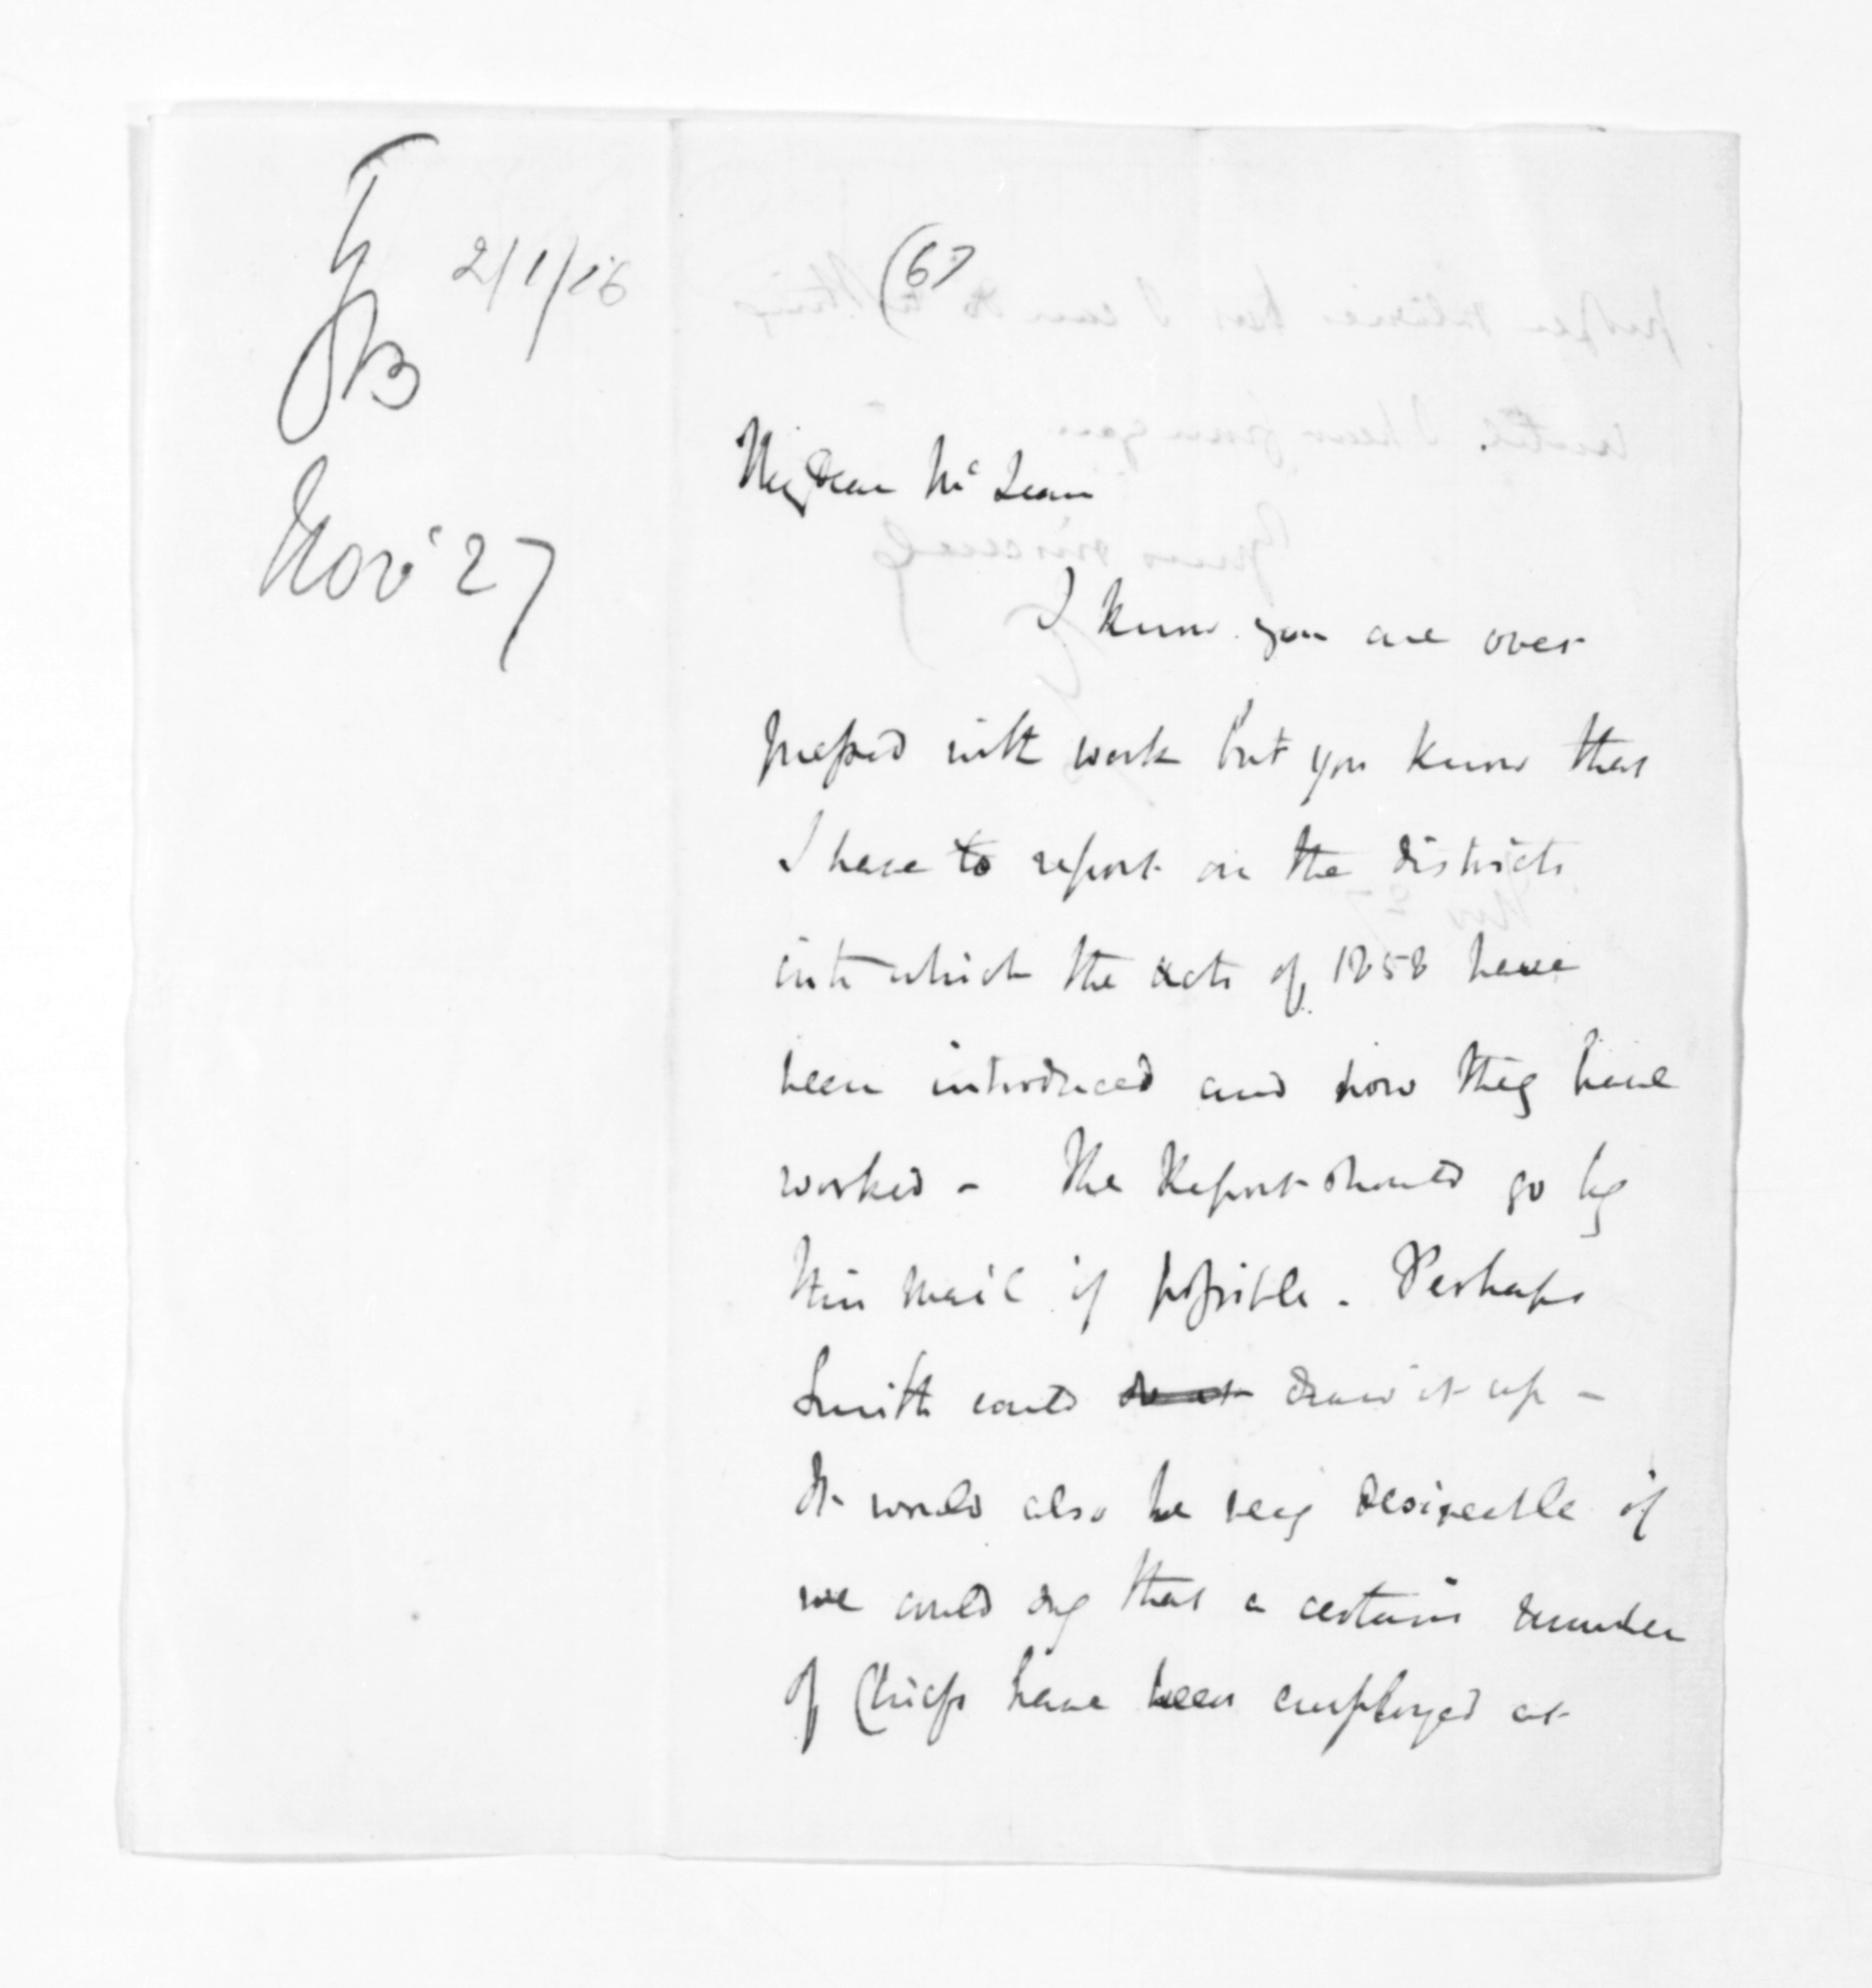 TGB
2/1/16
Nov' 27
(67
My Dear McLean
I know you are over
pressed with work but you know that
I have to report on the districts
into which the acts of 1858 have
been introduced and how they have
worked - The Report should go by
this mail if possible. Perhaps
Smith could draw it up -
It would also be very desireable if
we could say that a certain number
of Chiefs have been employed at